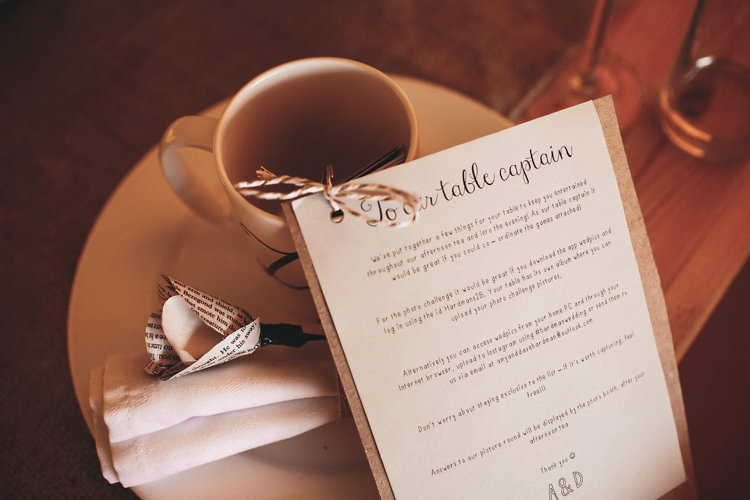 To our table captain
We've put together a few things for your table to keep you entertained
throughout our afternoon tea and into the evening! As our table captain it
would be great if you could co - ordinate the games attached!
For the photo challenge it would be great if you download the app wedpics and
log in using the id Hardmans2B. Your table has its own album where you can
upload your photo challenge pictures.
Alternatively you can access wedpics from your home PC and through your
Internet browser, upload to Instagram using @hardmanwedding or send them to
us via email at amyanddavehardman@outlook.com
Don't worry about staying exclusive to the list - if it's worth capturing, feel
free!!
Answers to our picture round will be displayed by the photo booth, after your
afternoon tea
Thank you ☺
A & D